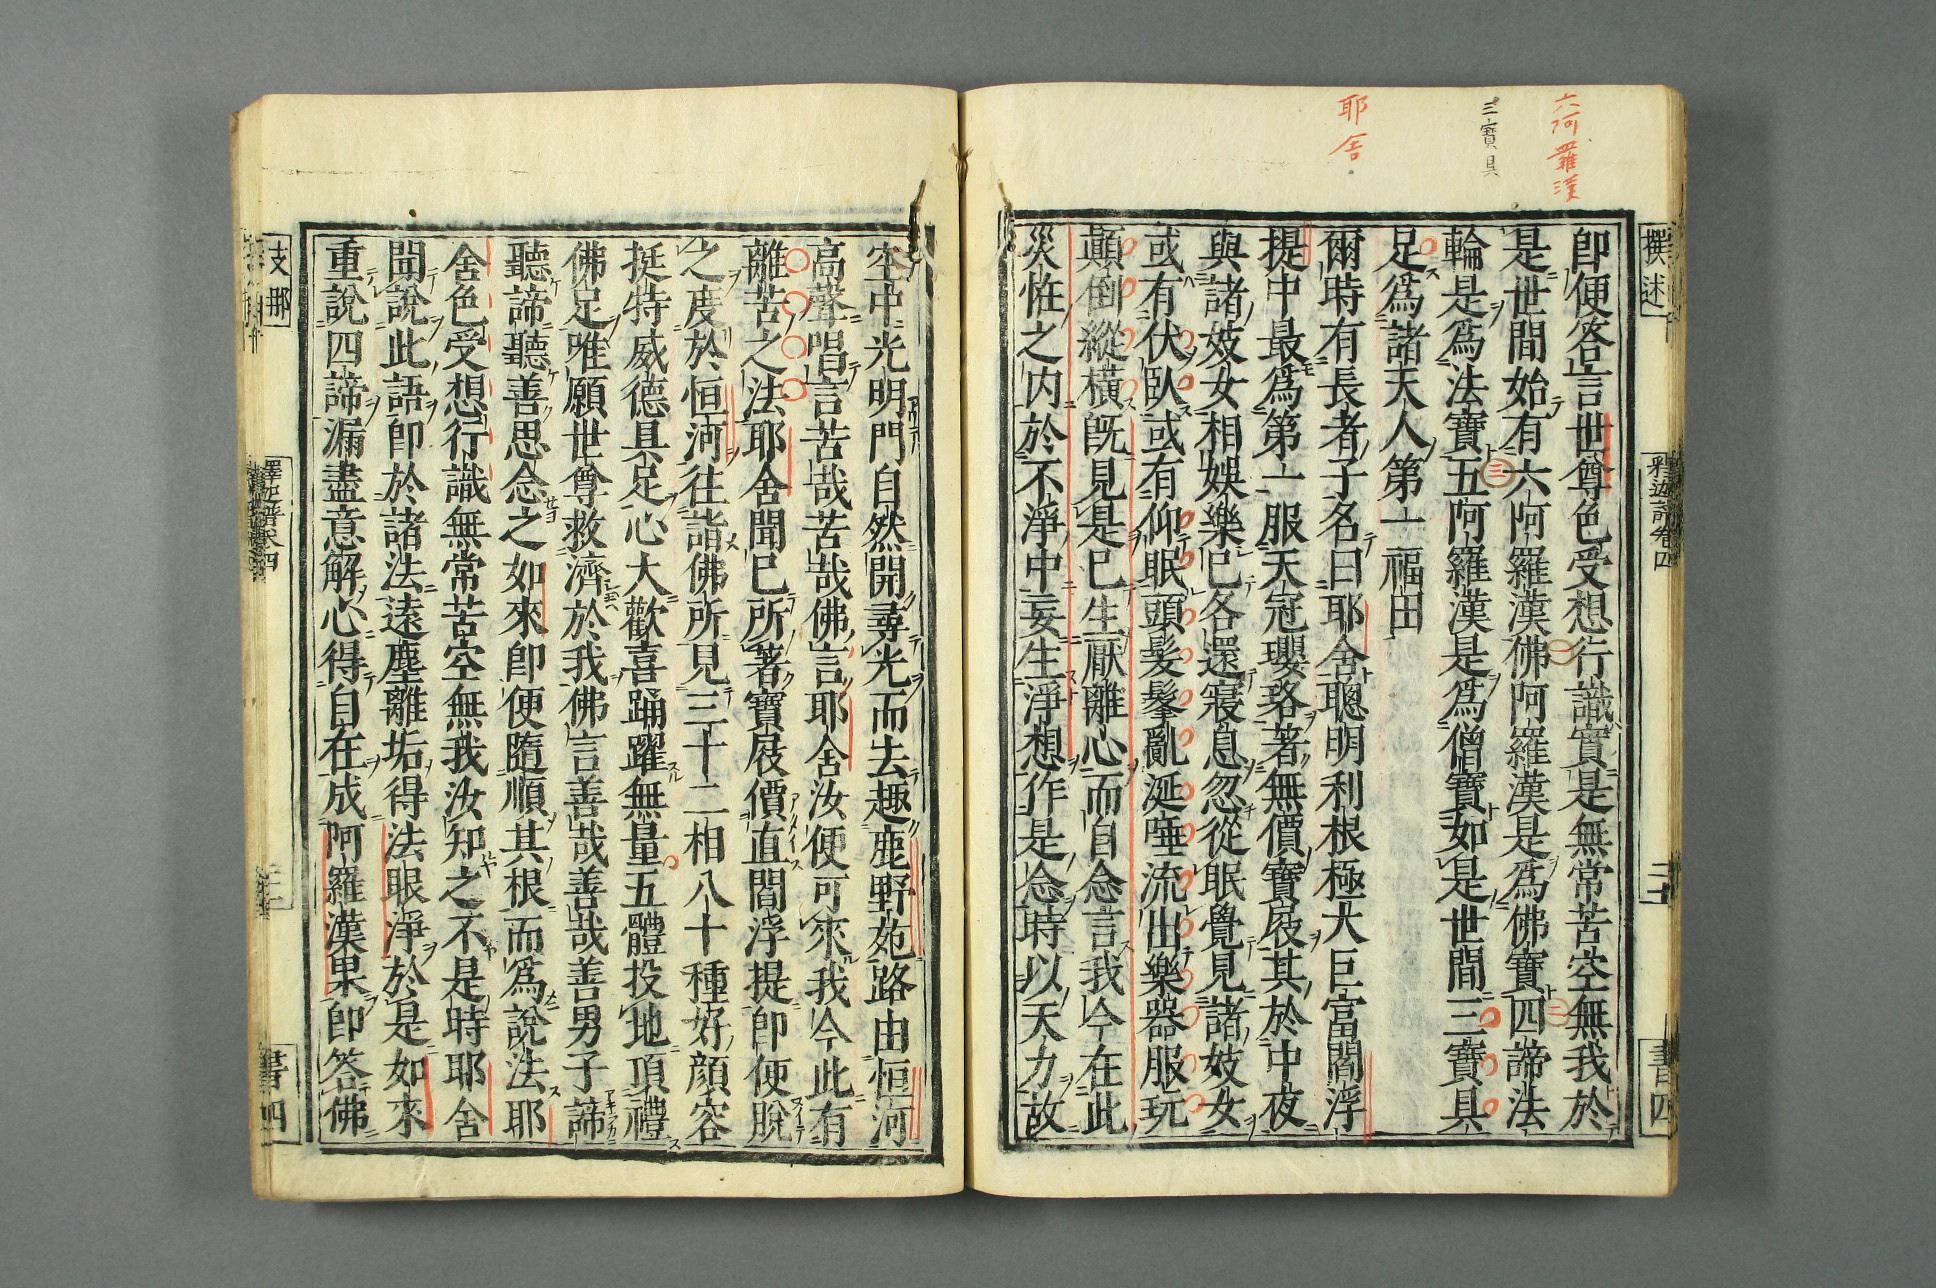 六阿羅漢
三寶具
耶舍
撰述
釋迦譜卷四
二十
書四
即便答言世尊色受想行識實是無常苦空無我於
是世間始有六阿羅漢佛阿羅漢是爲佛寶四諦法
輪是爲法寶五阿羅漢是爲僧寶如是世間三寶具
足爲諸天人第一福田
爾時有長者子名曰耶舍聰明利根極大巨富閻浮
提中最爲第一服天冠瓔珞著無價寶屐其於中夜
與諸妓女相娛樂已各還寢息忽從眠覺見諸妓女
或有伏臥或有仰眠頭髮髼亂涎唾流出樂器服玩
顛倒縱橫旣見是已生厭離心而自念言我今在此
災恠之內於不淨中妄生淨想作是念時以天力故
空中光明門自然開尋光而去趣鹿野苑路由恒河
高聲唱言苦哉苦哉佛言耶舍汝便可來我今此有
離苦之法耶舍聞已所著寶屐價直閻浮提即便脫
之度於恒河往詣佛所見三十二相八十種好顏容
挺特威德具足心大歡喜踊躍無量五體投地頂禮
佛足唯願世尊救濟於我佛言善哉善哉善男子諦
聽諦聽善思念之如來即便隨順其根而爲說法耶
舍色受想行識無常苦空無我汝知之不是時耶舍
聞說此語即於諸法遠塵離垢得法眼淨於是如來
重說四諦漏盡意解心得自在成阿羅漢果即答佛
支那
書四